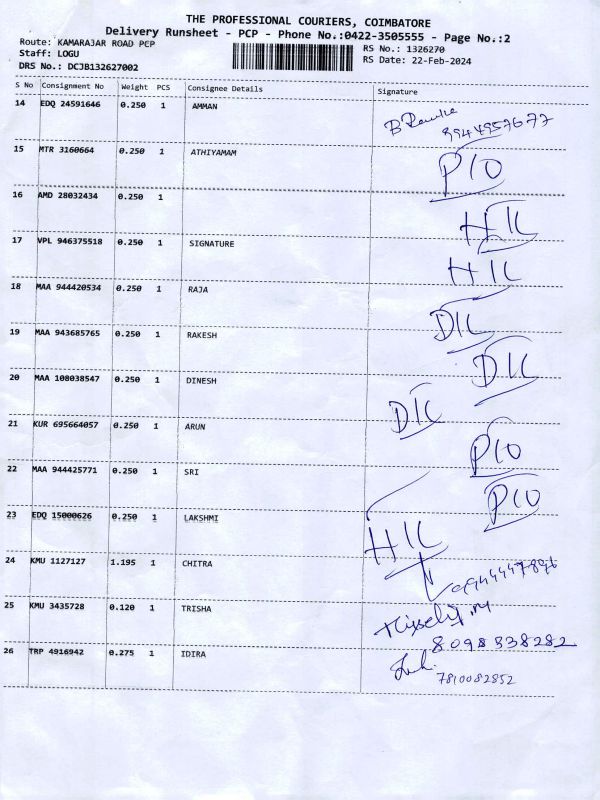 THE PROFESSIONAL COURIERS, COIMBATORE
Delivery Runsheet - PCP - Phone No.:0422-3505555 - Page No.:2
Route: KAMARAJAR ROAD PCP RS No.: 1326270
Staff: LOGU RS Date: 22-Feb-2024
DRS No.: DCJB132627002
S No Consignment No Weight PCS Consignee Details Signature
14 EDQ 24591646 0.250 1 AMMAN
9944957677
15 MTR 3160664 0.250 1 ATHIYAMAM P/O
16 AMD 28032434 0.250 1 H/L
17 VPL 946375518 0.250 1 SIGNATURE H/L
18 MAA 944420534 0.250 1 RAJA D/L
19 MAA 943685765 0.250 1 RAKESH D/L
20 MAA 108038547 0.250 1 DINESH D/L
21 KUR 695664057 0.250 1 ARUN P/O
22 MAA 944425771 0.250 1 SRI P/O
23 EDQ 15000626 0.250 1 LAKSHMI H/L
24 KMU 1127127 1.195 1 CHITRA
25 KMU 3435728 0.120 1 TRISHA
8098838282
26 TRP 4916942 0.275 1 IDIRA
7810082852